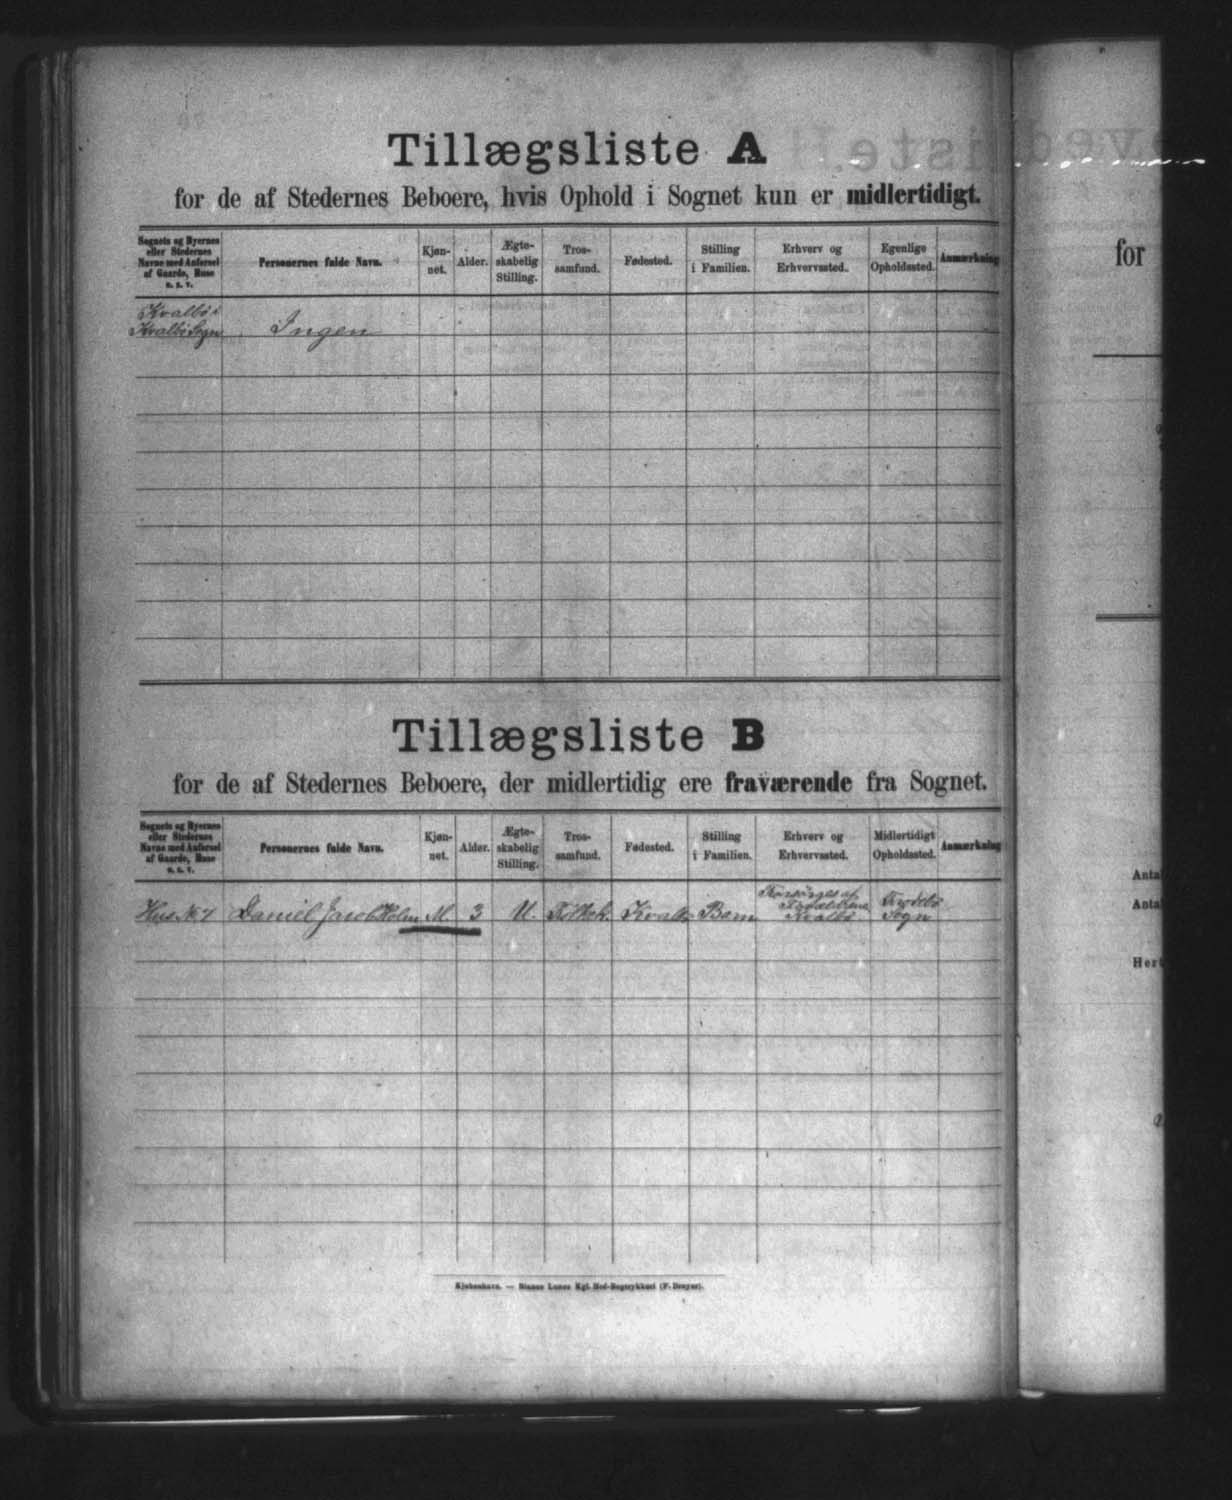 Tillægsliste A
for de af Stedernes Beboere, hvis Ophold i Sognet kun er midlertidigt.
Sognets og Byernes
eller Stedernes
Navne med Anførsel
af Gaarde, Huse
o. s. v.
Personernes fulde Navn.
Kjøn-
net.
Alder.
Ægte-
skabelig
Stilling.
Tros-
samfund.
Fødested.
Stilling
i Familien.
Erhverv og
Erhvervssted.
Egenlige
Opholdssted.
Anmærkning
Kvalbø i
Kvalbø Sogn
Ingen
Tillægsliste B
for de af Stedernes Beboere, der midlertidig ere fraværende fra Sognet.
Sognets og Byernes
eller Stedernes
Navne med Anførsel
af Gaarde, Huse
o. s. v.
Personernes fulde Navn.
Kjøn-
net.
Alder.
Ægte-
skabelig
Stilling.
Tros-
samfund.
Fødested.
Stilling
i Familien.
Erhverv og
Erhvervssted.
Midlertidigt
Opholdssted.
Anmærkning
Hus № 7
Daniel Jacob Holm
M
3
U.
Folkek.
Kvalbø
Barn
Forsørges af
Forældrene
Kvalbø
Sogn
Kjøbenhavn. — Bianco Lunos Kgl. Hof-Bogtrykkeri (F. Dreyer).
for
Anta
Anta
Her